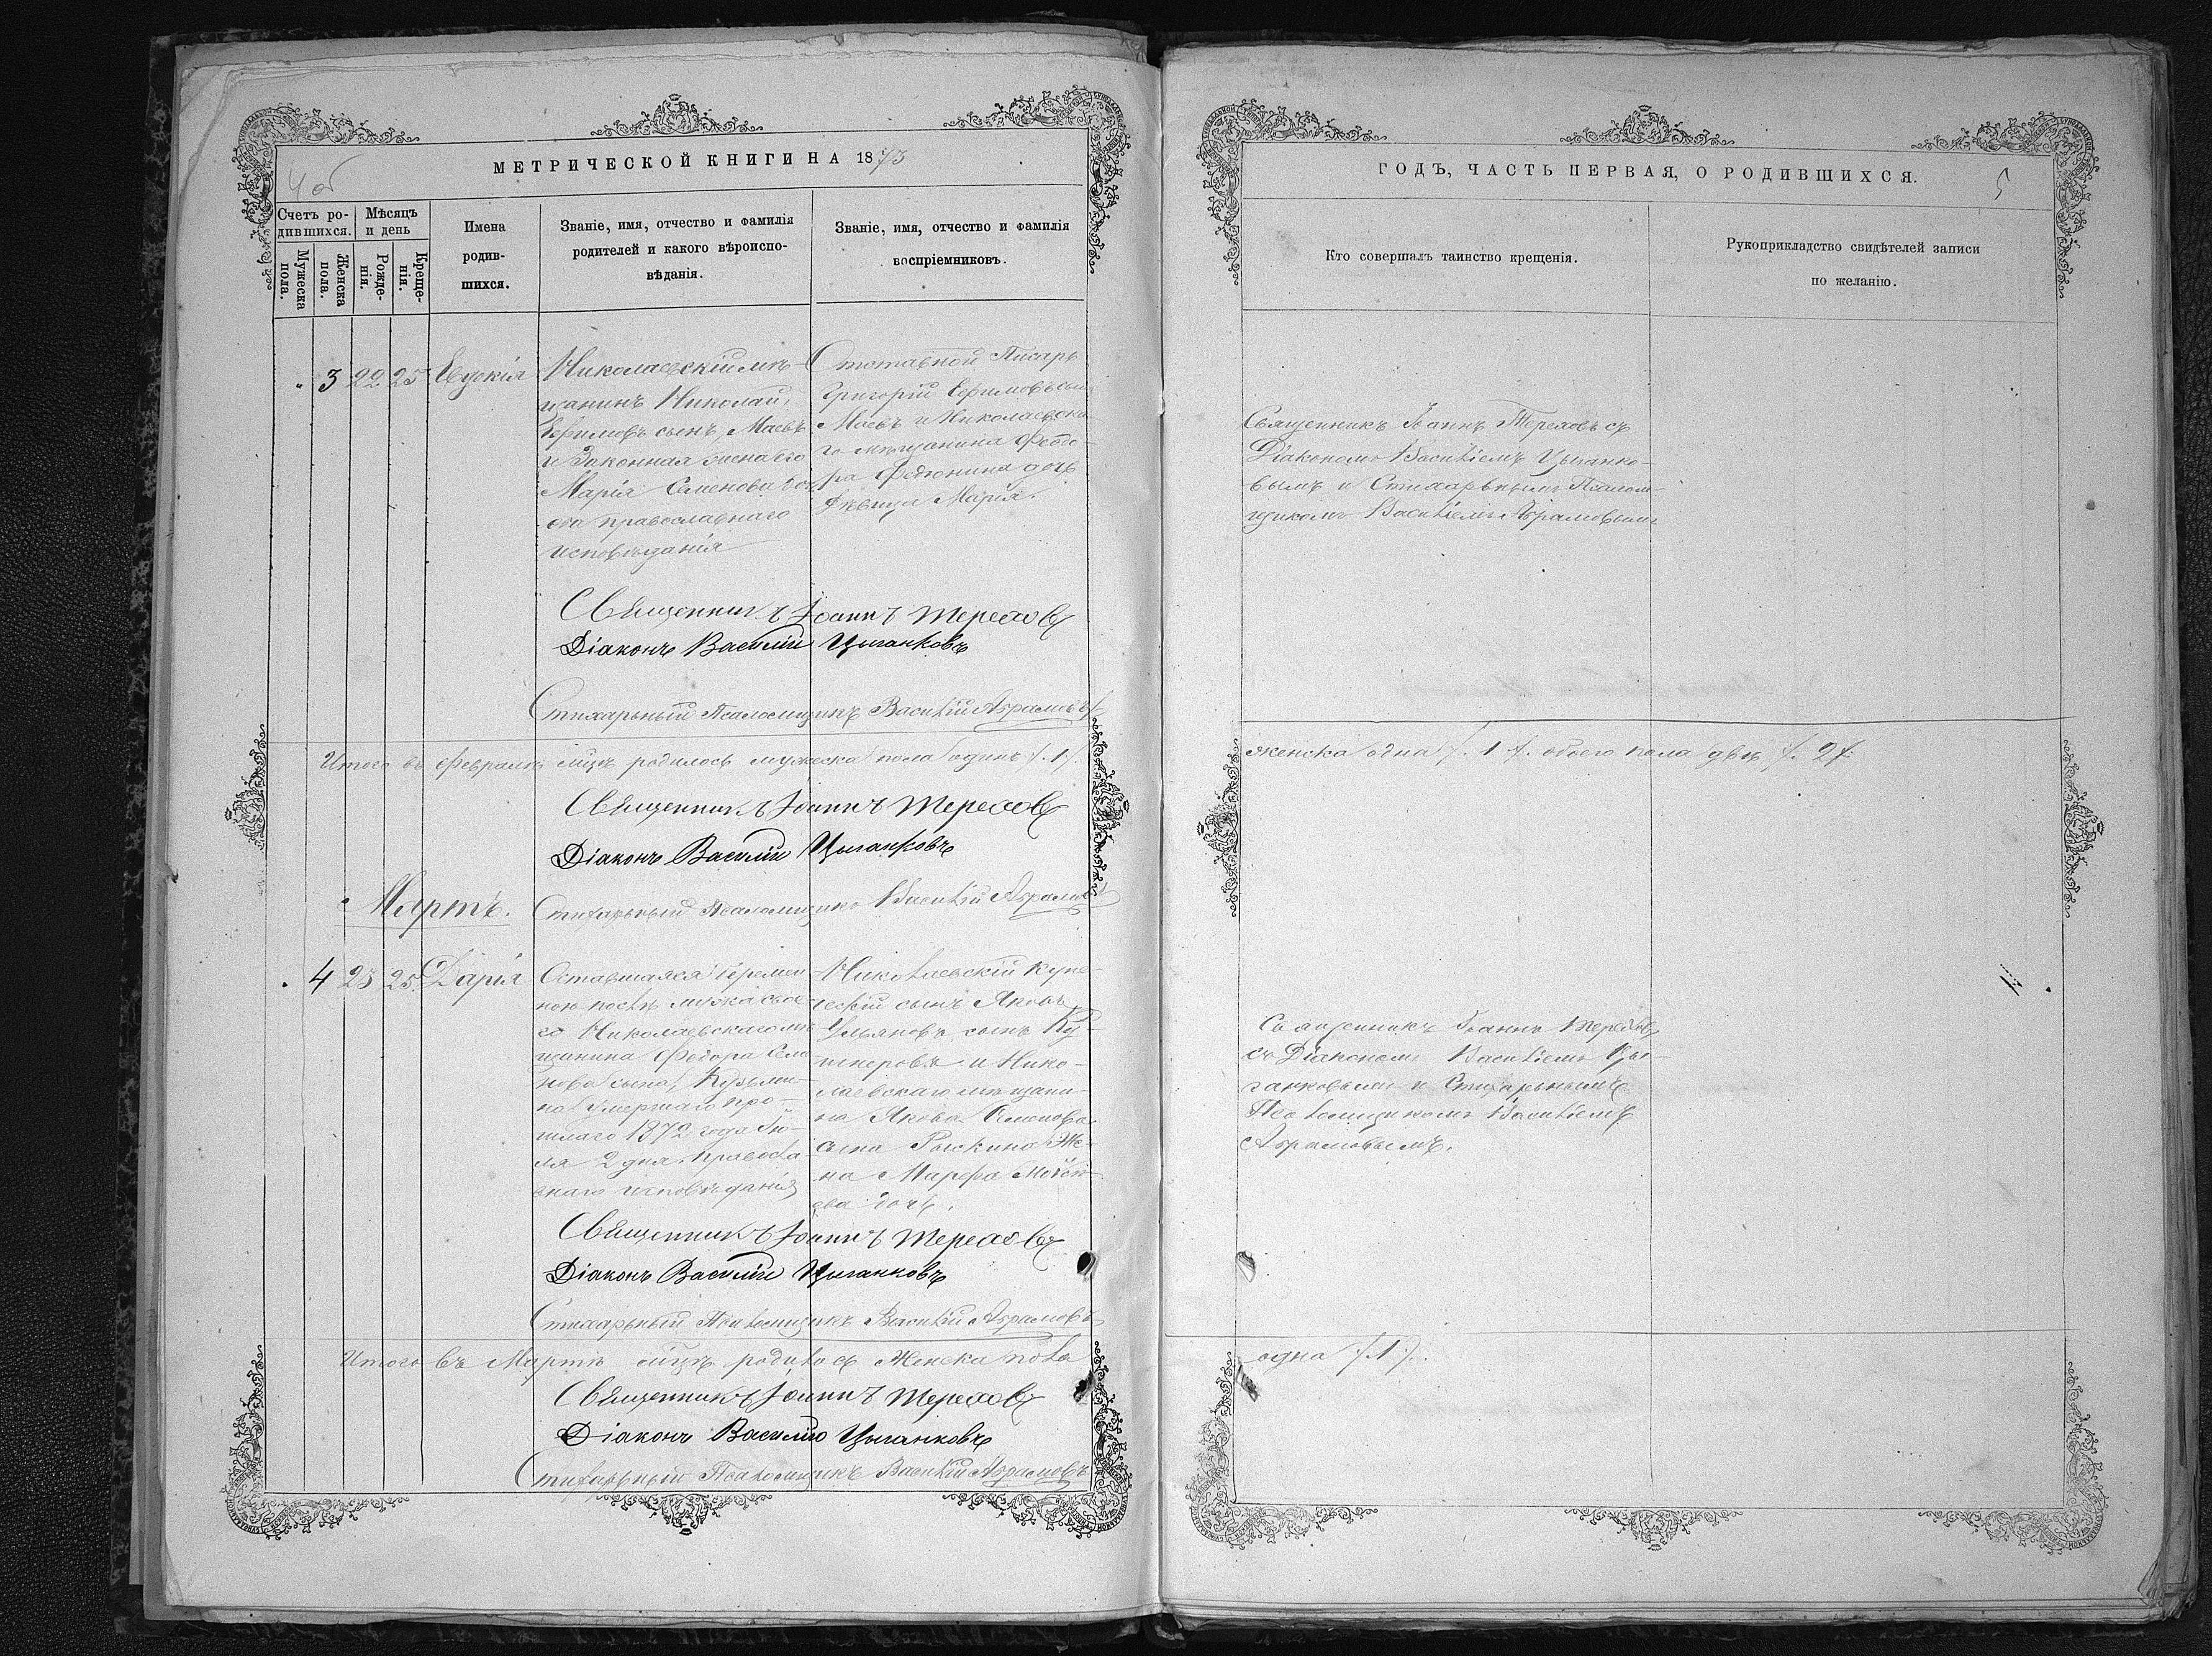 МЕТРИЧЕСКОЙ КНИГИ НА 1873
4 об
Счетъ ро-
дившихся.
Мѣсяцъ
и день
Мужеска
пола.
Женска
пола.
Рожде-
нія.
Креще-
нія.
Имена
родив-
шихся.
Званіе, имя, отчество и фамилія
родителей и какого вѣроиспо-
вѣданія.
Званіе, имя, отчество и фамилія
воспріемниковъ.
3 22 25 Евдокія
Николаевскій мѣ-
щанинъ Николай
Ефимовъ сынъ, Маевъ
и Законная жена его
Марія Семенова доч
оба православнаго
исповѣданія
Отставной Писарь
Григорій Ефимовъ сынъ
Маевъ и Николаевска-
го мѣщанина Феодо-
ра Федюнина дочь
Дѣвица Марія.
Священникъ Іоаннъ Тереховъ
Діаконъ Василій Цыганковъ
Стихарный Псаломщикъ Василій Абрамовъ
Итого въ Февралѣ мцѣ родилось мужеска пола одинъ /.1/.
Священникъ Іоаннъ Тереховъ
Діаконъ Василій Цыганковъ
Стихарный Псаломщикъ Василій Абрамовъ
Мартъ.
4 23 25 Дарія
Оставшаяся беремен-
ною послѣ мужа свое-
го Николаевскаго мѣ-
щанина Федора Семе-
нова сына, Кузьми-
на умершаго про-
шлаго 1872 года Ію-
ля 2 дня. Правосла-
внаго исповѣданія
Николаевскій Купе-
ческій сынъ Яковъ
Ульяновъ сынъ
и Нико-
лаевскаго мѣщани-
на Якова Семенова
сына Рыскина Же-
на Марфа
ева дочь.
Священникъ Іоаннъ Тереховъ
Діаконъ Василій Цыганковъ
Стихарный Псаломщикъ Василій Абрамовъ
Итого въ Мартѣ мцѣ родилось Женска пола
Священникъ Іоаннъ Тереховъ
Діаконъ Василій Цыганковъ
Стихарный Псаломщикъ Василій Абрамовъ
ГОДЪ, ЧАСТЬ ПЕРВАЯ, О РОДИВШИХСЯ.
5
Кто совершалъ таинство крещенія.
Рукоприкладство свидѣтелей записи
по желанію.
Священникъ Іоаннъ Тереховъ съ
Діакономъ Василіемъ Цыганко-
вымъ и Стихарнымъ Псалом-
щикомъ Василіемъ Абрамовымъ
женска одна /.1/. обоего пола двѣ /.2/.
Священникъ Іоаннъ Тереховъ
съ Діакономъ Василіемъ Цы-
ганковымъ и Стихарнымъ
Псаломщикомъ Василіемъ
Абрамовымъ.
одна /.1/.